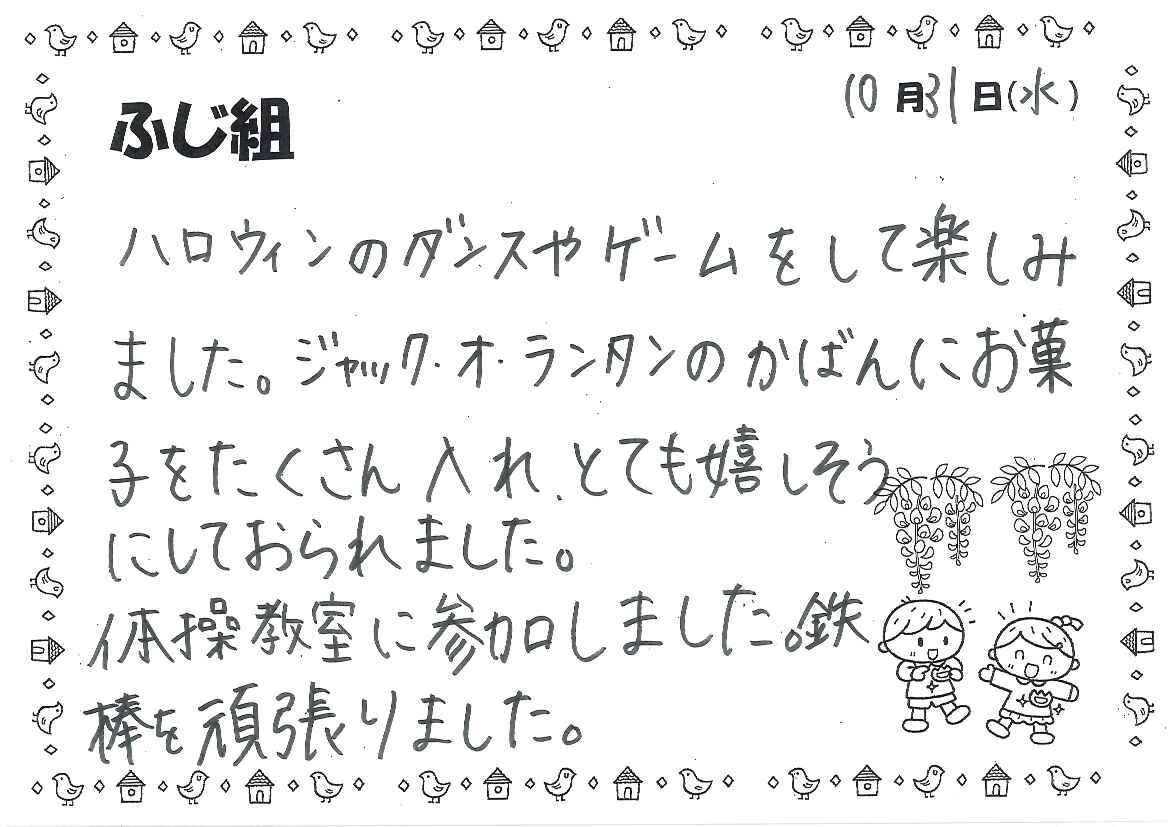 10月31日(水)
ふじ組
ハロウィンのダンスやゲームをして楽しみ
ました。ジャック・オ・ランタンのかばんにお菓
子をたくさん入れ、とても嬉しそう
にしておられました。
体操教室に参加しました。鉄
棒を頑張りました。